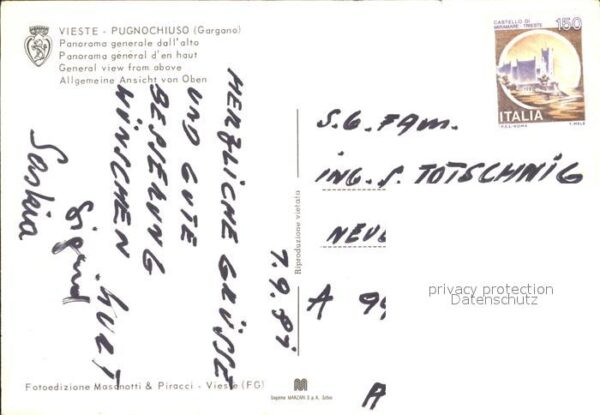 VIESTE - PUGNOCHIUSO (Gargano)
Panorama generale dall'alto
Panorama général d'en haut
General view from above
Allgemeine Ansicht von Oben
CASTELLO DI
MIRAMARE - TRIESTE
150
ITALIA
HERZLICHE GRÜSSE
UND GUTE
BESSERUNG
WÜNSCHEN
KURT
Sigrid
Saskia
7.9.81
S.G. FAM.
ING. S. TOTSCHNIG
NEUG
A 99
A
privacy protection
Datenschutz
Riproduzione vietata
Fotoedizione Masanotti & Piracci - Vieste (FG)